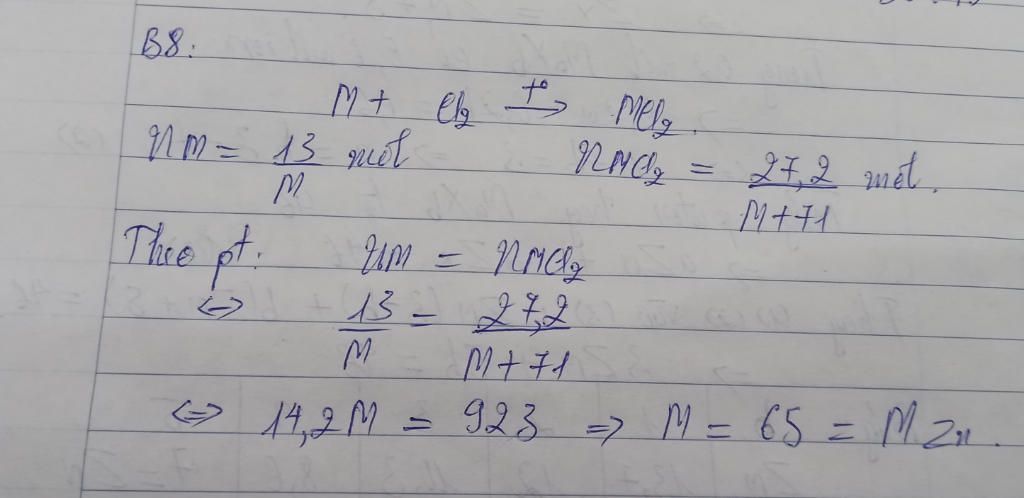 B8:
M + Cl₂ t° → MCl₂.
nM = 13/M mol nMCl₂ = 27,2/M+71 mol.
Theo pt: nM = nMCl₂
<=> 13/M = 27,2/M+71
<=> 14,2M = 923 => M = 65 = M Zn.